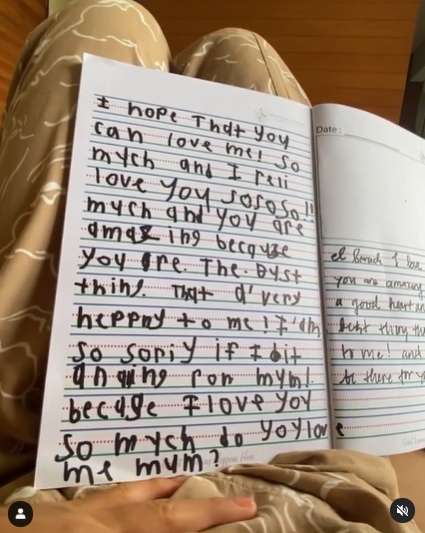 I hope That yoy
can love me! so
mych and I reli
love yoy sososo!!
mych and yoy are
amazing becayse
yoy are. The. byst
thing. That a'very
heppny to me! I'am
so soriy if I bit
anything ron mym!
becayse I love yoy
so mych do yoy love
me mum?
Date:
I love
you are amazing
a good heart an
best thing tha
to me! and
be there for yo